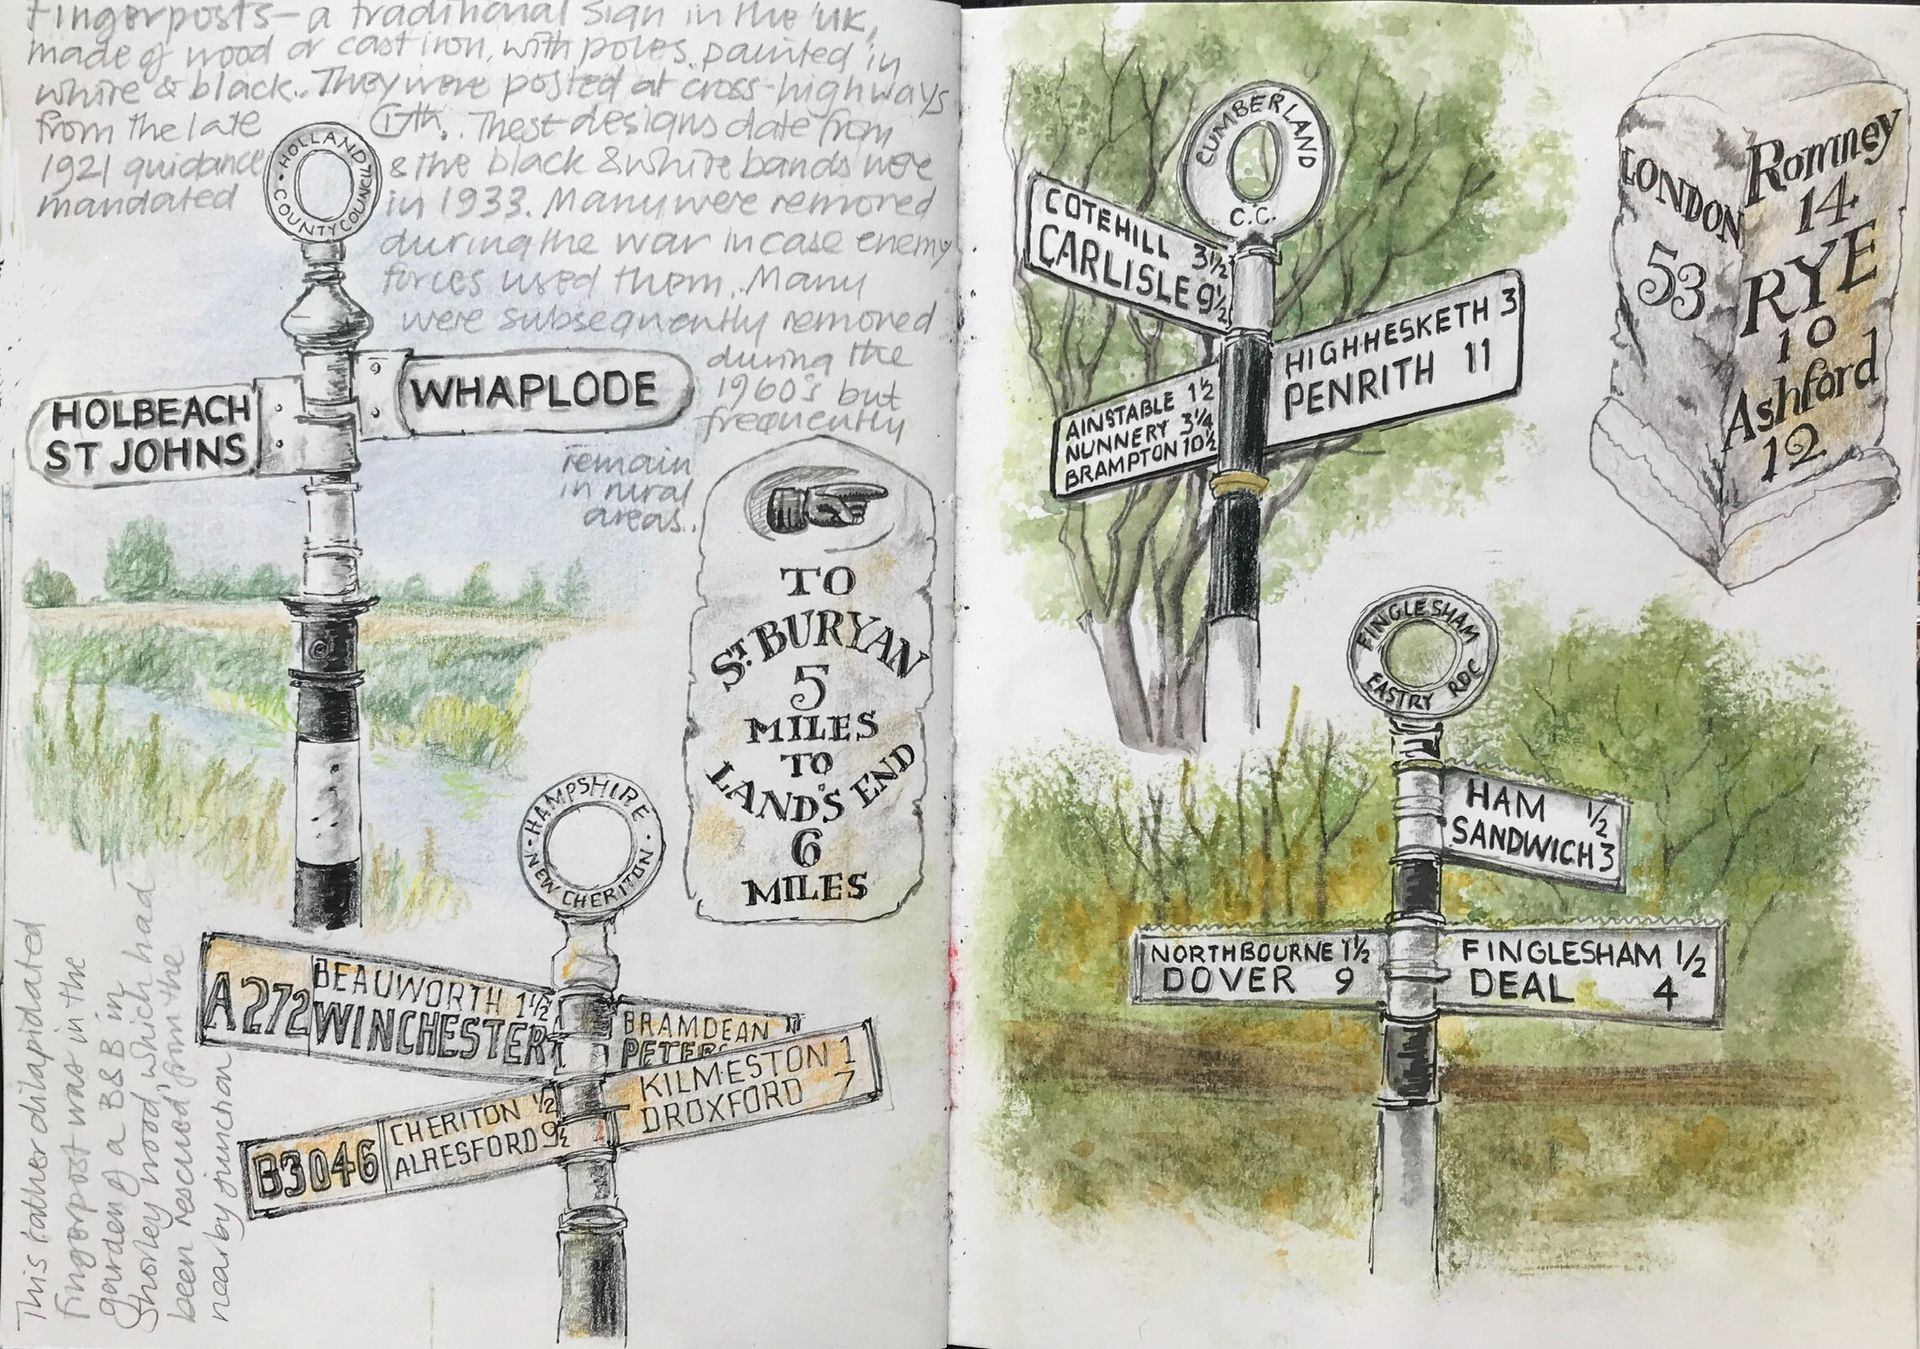 Fingerposts - a traditional sign in the UK,
made of wood or cast iron, with poles painted in
white & black. They were posted at cross-highways
from the late 17th. These designs date from
1921 guidance & the black & white bands were
mandated in 1933. Many were removed
during the war in case enemy
forces used them. Many
were subsequently removed
during the
1960's but
frequently
remain
in rural
areas..
HOLLAND
COUNTY COUNCIL
HOLBEACH
ST JOHNS
WHAPLODE
TO
ST. BURYAN
5
MILES
TO
LAND'S END
6
MILES
HAMPSHIRE
NEW CHERITON
A272
BEAUWORTH 1 1/2
WINCHESTER
BRAMDEAN
PETER
KILMESTON 1
DROXFORD 7
B3046
CHERITON 1/2
ALRESFORD 9 1/2
This rather dilapidated
fingerpost was in the
garden of a B&B in
Shorley wood, which had
been rescued from the
nearby junction
CUMBERLAND
C.C.
COTEHILL 3 1/2
CARLISLE 9 1/2
HIGH HESKETH 3
PENRITH 11
AINSTABLE 1 1/2
NUNNERY 3 1/4
BRAMPTON 10 1/2
LONDON
53
Romney
14
RYE
10
Ashford
12
FINGLESHAM
EASTRY RDC
HAM 1/2
SANDWICH 3
NORTHBOURNE 1 1/2
DOVER 9
FINGLESHAM 1/2
DEAL 4